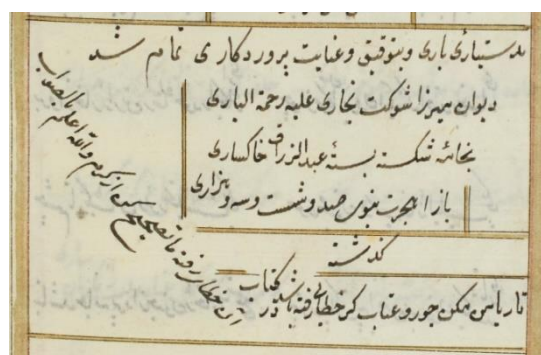 بدستیاری یاری و بتوفیق و عنایت پروردکاری تمام شد
دیوان میرزا شوکت بخاری علیه رحمة الباری
بخامهٔ شکسته بستهٔ عبدالرزاق خاکساری
از هجرت نبوی صد و شصت و سه و هزاری
کذشته
قاریا بر من مکن جور و عتاب
کر خطایی رفته باشد در کتاب
ان خطای رفته را تصحیح کن
از کرم والله اعلم بالصواب